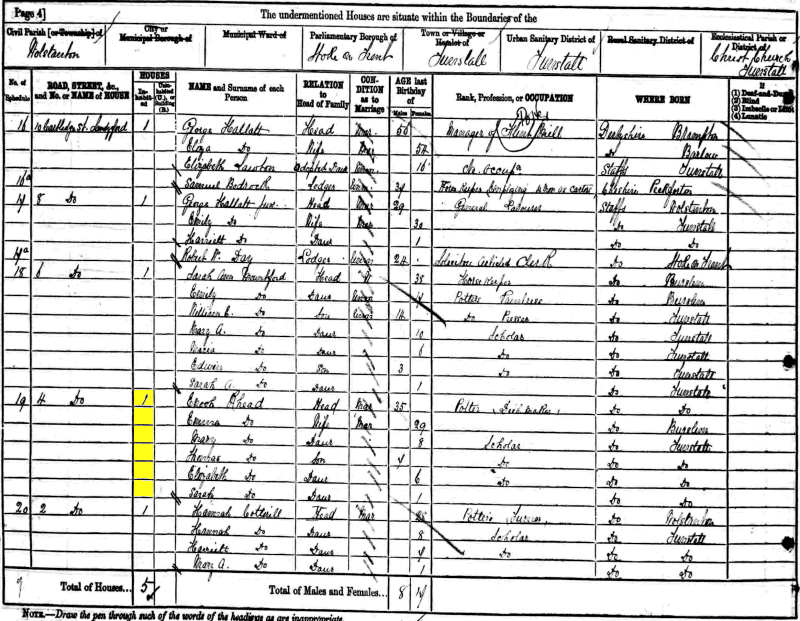 Page 4]
The undermentioned Houses are situate within the Boundaries of the
Civil Parish [or Township] of
Wolstanton
City or
Municipal Borough of
Municipal Ward of
Parliamentary Borough of
Stoke on Trent
Town or Village or Hamlet of
Tunstall
Urban Sanitary District of
Tunstall
Rural Sanitary District of
Ecclesiastical Parish or
District of
Christ Church
Tunstall
No. of Schedule
ROAD, STREET, &c., and No. or NAME of HOUSE
HOUSES
In-habit-ed
Unin-habited (U.), or Building (B.)
NAME and Surname of each Person
RELATION to Head of Family
CON-DITION as to Marriage
AGE last Birthday of
Males
Females
Rank, Profession, or OCCUPATION
WHERE BORN
If
(1) Deaf-and-Dumb
(2) Blind
(3) Imbecile or Idiot
(4) Lunatic
16 1 George Hallatt Head Mar 56 Manager of Flint Mill Derbyshire Brampton
Eliza Do Wife Mar 54 Do Barlow
Elizabeth Lawton Adopted Daur 16 Staffs Tunstall
16a Samuel Lodger
17 8 Do 1 George Hallatt Jun. Head Mar 29 General Labourer Staffs Wolstanton
Emily Do Wife Mar 30 Do Tunstall
Harriett Do Daur 1 Do Do
17a Robert W. Day Lodger 24 Solicitors Articled Clerk Do Stoke on Trent
18 6 Do 1 Sarah Ann Head 38 Housekeeper Do Burslem
Emily Do Daur Potters Do Burslem
William E. Do Son 14 Do Do Tunstall
Mary A. Do Daur 10 Scholar Do Tunstall
Do Daur 6 Do Do Tunstall
Edwin Do Son 3 Do Tunstall
Sarah A. Do Daur 1 Do Tunstall
19 4 Do 1 Enoch Rhead Head Mar 35 Potter Dish Maker Do Do
Emma Do Wife Mar 29 Do Burslem
Mary Do Daur 8 Scholar Do Tunstall
Thomas Do Son Do Do Do
Elizabeth Do Daur 6 Do Do Do
Sarah Do Daur 1 Do Do
20 2 Do 1 Hannah Cotterill Head Mar Potters Do Wolstanton
Hannah Do Daur 8 Scholar Do Tunstall
Harriett Do Daur Do Do Do
Mary A. Do Daur 1 Do Do
Total of Houses... 5
Total of Males and Females... 8
NOTE.—Draw the pen through such of the words of the headings as are inappropriate.